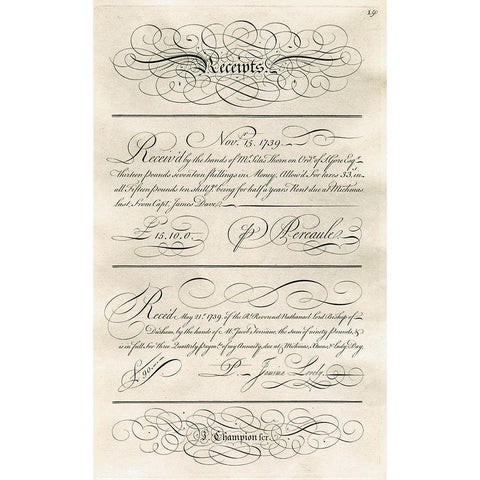 19
Receipts.
Novr. 15. 1739
Receiv'd by the hands of Mr. Silas Thorn on Ordr. of Esqr.
Thirteen Pounds seventeen Shillings in Money. Allow'd For taxes 33s. in
all Fifteen Pounds ten Shills. being for half a years Rent due at Michmas
last, From Capt. James Dave
£ 15.10.0. P Pereaule
Reced. May 21st. 1739, of the Rt. Reverend Nathanael Lord Bishop of
Durham, by the hands of Mr. Jacob the sum of ninety Pounds, &
is in full for Three Quarterly Paymts. of my Annuity, due at Michmas, Xmas, & Lady Day
£ 90 P. Jemma Lovely
J. Champion scr.